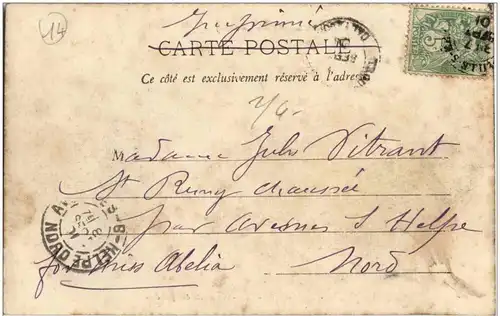 14
Imprimé
CARTE POSTALE
Ce côté est exclusivement réservé à l'adresse
M
Madame Jules Vitrant
St Remy Chaussée
par Avesnes s Helpe
for Miss Abelia
Nord